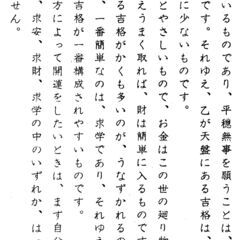 いるものであり、平穏無事を願うことは、
です。それゆえ、乙が天盤にある吉格は、
に少ないものです。
とやさしいもので、お金はこの世の廻り物
えうまく取れば、財は簡単に入るものです
る吉格がかくも多いのが、うなずかれるの
、一番簡単なのは、求学であり、それゆえ
吉格が一番構成されやすいものです。
方によって開運をしたいときは、まず自分
、求安、求財、求学の中のいずれか、はっ
せん。